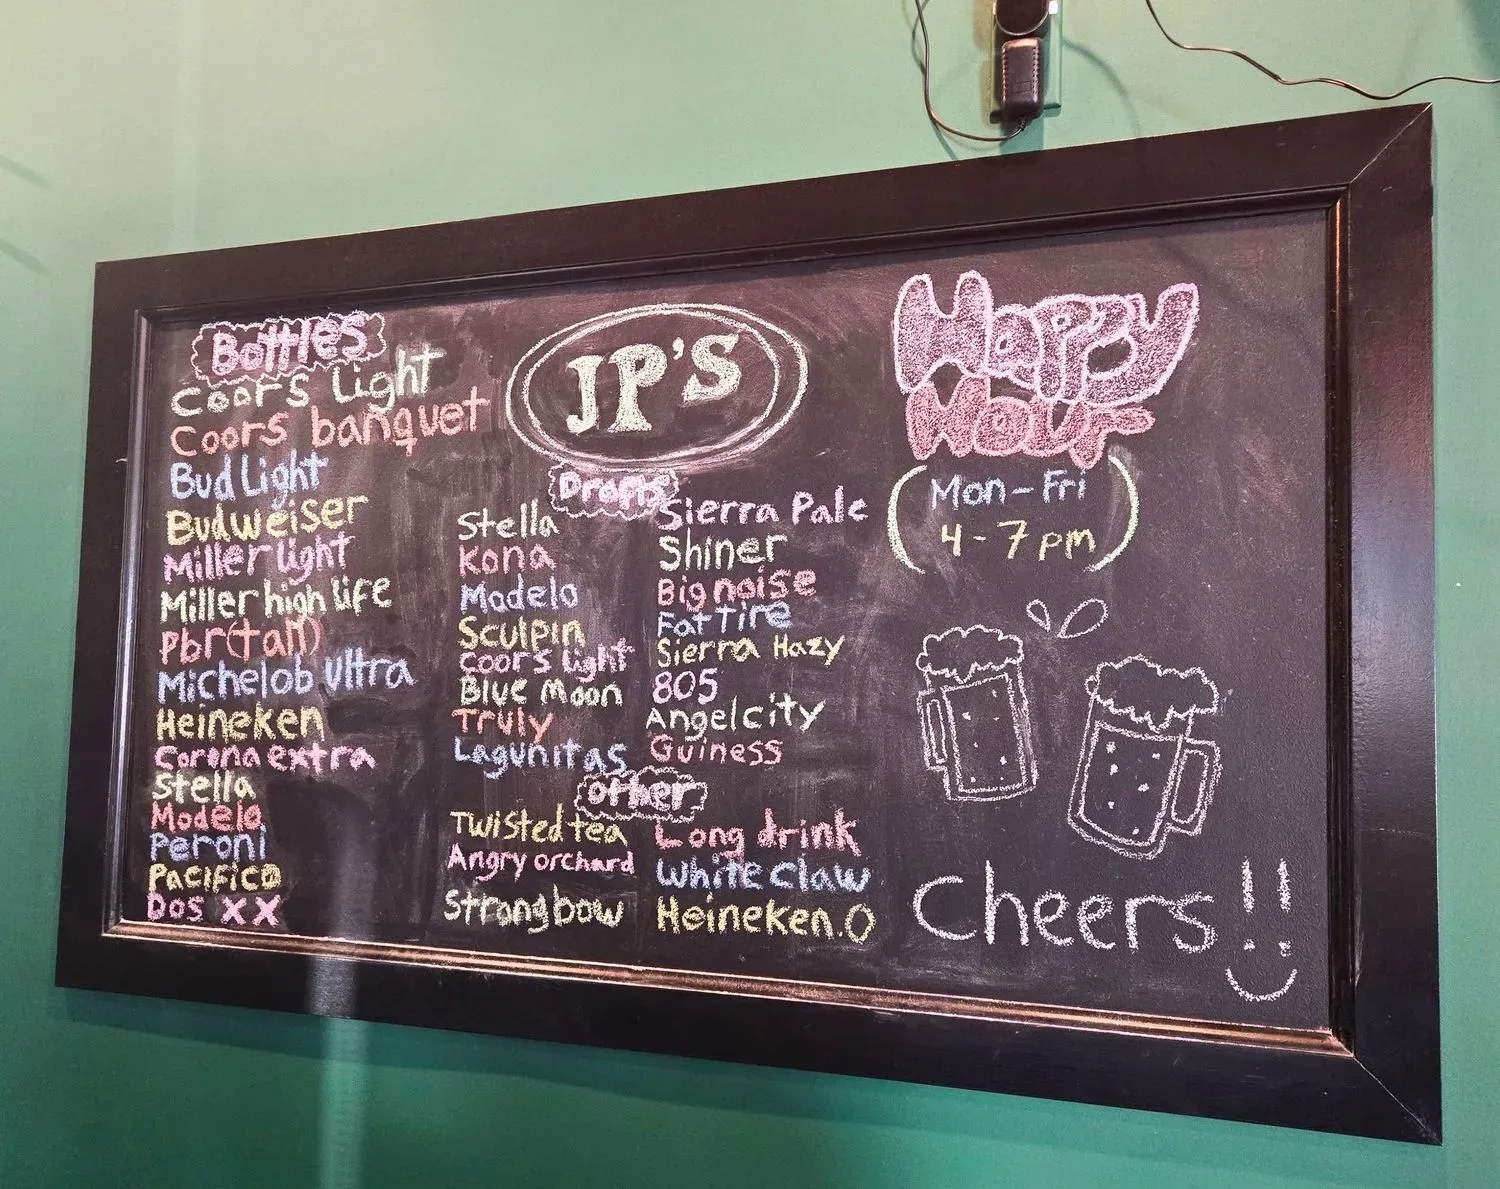 Bottles
Coors Light
Coors banquet
Bud Light
Budweiser
Miller light
Miller high life
Pbr(tall)
Michelob ultra
Heineken
Corona extra
Stella
Modelo
Peroni
Pacifico
Dos XX
JP'S
Drafts
Stella
Kona
Modelo
Sculpin
Coors light
Blue Moon
Truly
Lagunitas
Sierra Pale
Shiner
Big noise
Fat tire
Sierra Hazy
805
Angel city
Guiness
other
Twisted tea
Angry orchard
Strongbow
Long drink
White Claw
Heineken.0
Happy
Hour
(Mon-Fri
4-7pm)
Cheers!!